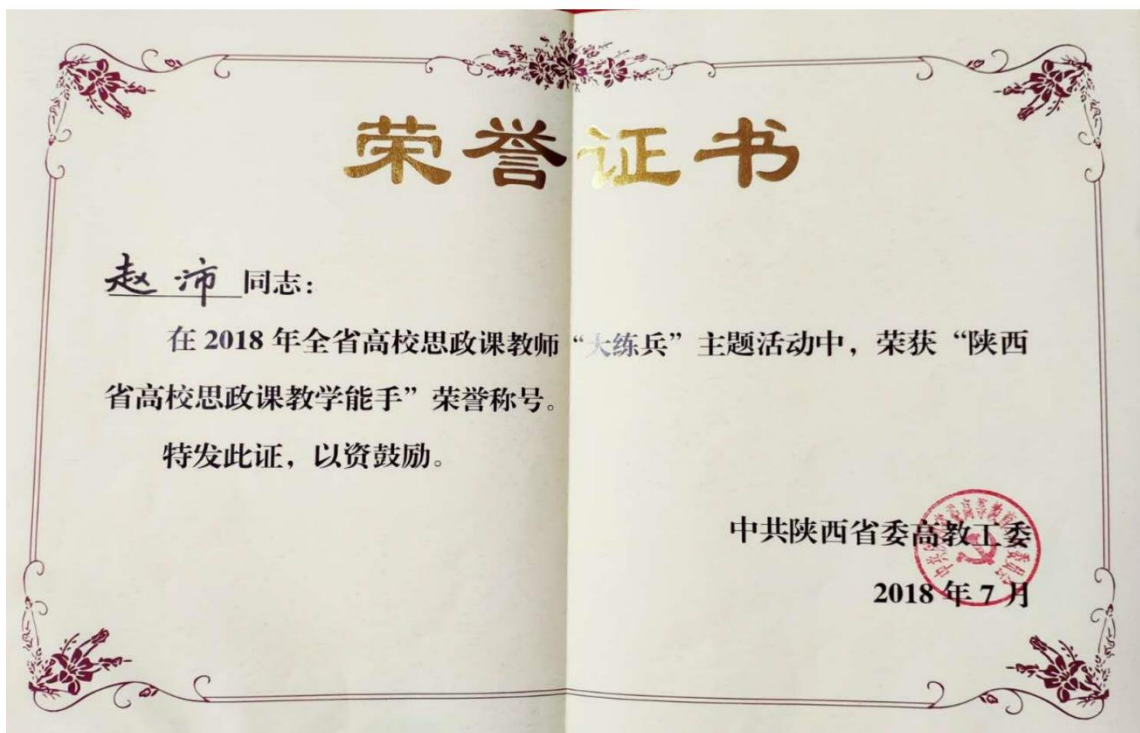 荣誉证书
赵沛 同志：
在 2018 年全省高校思政课教师“大练兵”主题活动中，荣获“陕西
省高校思政课教学能手”荣誉称号。
特发此证，以资鼓励。
中共陕西省委高教工委
2018 年 7 月